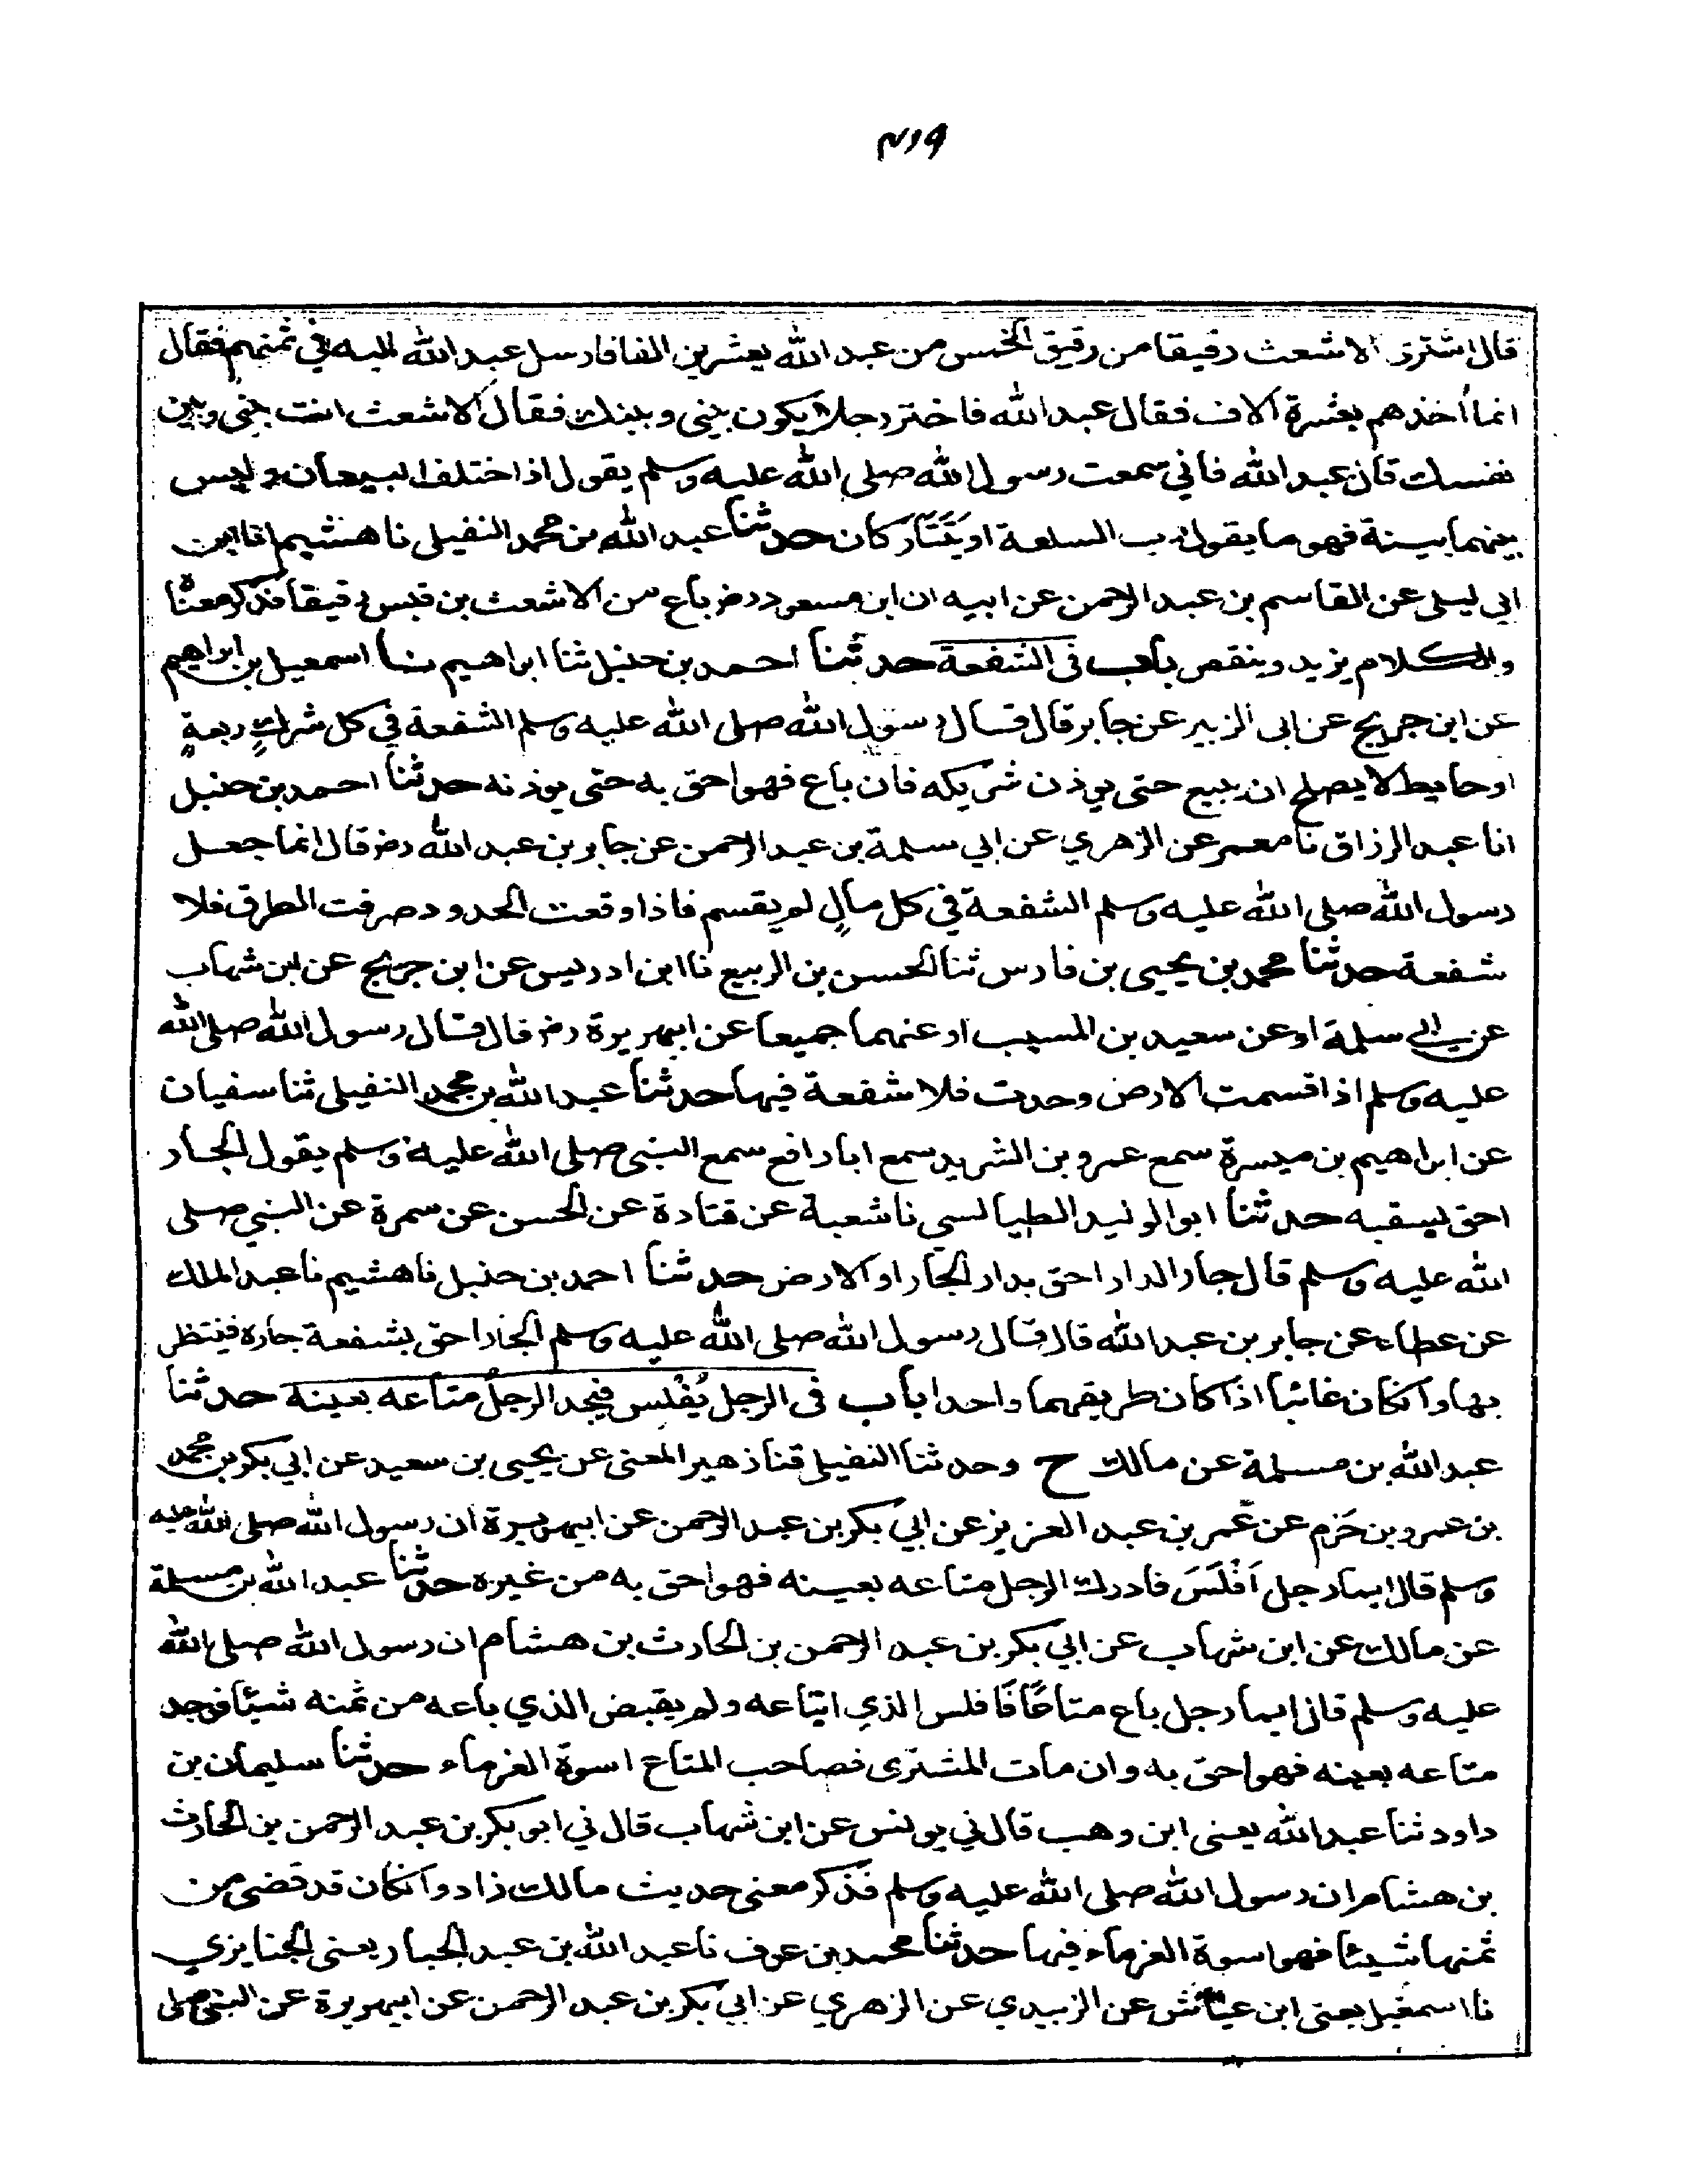 قال اشترى الاشعث رقيقا من رقيق الخمس من عبد الله بعشرين الفا فارسل عبد الله اليه في ثمنهم فقال
انما أخذهم بعشرة الاف فقال عبد الله فاختر رجلا يكون بيني وبينك فقال الاشعث انت بيني وبين
نفسك قال عبد الله فاني سمعت رسول الله صلى الله عليه وسلم يقول اذا اختلف البيعان وليس
بينهما بينة فهو ما يقول رب السلعة او يَتَتَارَكان حدثنا عبد الله بن محمد النفيلي نا هشيم انا ابن
ابي ليلى عن القاسم بن عبد الرحمن عن ابيه ان ابن مسعود رضـ باع من الاشعث بن قيس رقيقا فذكر معناه
والكلام يزيد وينقص باب في الشفعة حدثنا احمد بن حنبل ثنا ابراهيم نا اسمعيل بن ابراهيم
عن ابن جريج عن ابى الزبير عن جابر قال قال رسول الله صلى الله عليه وسلم الشفعة في كل شركٍ ربعةٍ
او حايط لا يصلح ان يبيع حتى يوذن شريكه فان باع فهو احق به حتى يوذنه حدثنا احمد بن حنبل
انا عبد الرزاق نا معمر عن الزهري عن ابي سلمة بن عبد الرحمن عن جابر بن عبد الله رضـ قال انما جعل
رسول الله صلى الله عليه وسلم الشفعة في كل مالٍ لم يقسم فاذا وقعت الحدود صرفت الطرق فلا
شفعة حدثنا محمد بن يحيى بن فارس ثنا الحسن بن الربيع نا ابن ادريس عن ابن جريج عن ابن شهاب
عن ابي سلمة او عن سعيد بن المسيب او عنهما جميعا عن ابيهريرة رضـ قال قال رسول الله صلى الله
عليه وسلم اذا قسمت الارض وحدت فلا شفعة فيها حدثنا عبد الله بن محمد النفيلي ثنا سفيان
عن ابراهيم بن ميسرة سمع عمرو بن الشريد سمع ابا رافع سمع النبى صلى الله عليه وسلم يقول الجار
احق بسقبه حدثنا ابو الوليد الطيالسي نا شعبة عن قتادة عن الحسن عن سمرة عن النبي صلى
الله عليه وسلم قال جار الدار احق بدار الجار او الارض حدثنا احمد بن حنبل نا هشيم نا عبد الملك
عن عطاء عن جابر بن عبد الله قال قال رسول الله صلى الله عليه وسلم الجار احق بشفعة جاره فينتظر
بها وانكان غائبا اذا كان طريقهما واحدا باب فى الرجل يُفْلس فيجد الرجلُ متاعه بعينه حدثنا
عبد الله بن مسلمة عن مالك ح وحدثنا النفيلي قثنا زهير المعنى عن يحيى بن سعيد عن ابي بكر بن محمد
بن عمرو بن حَزم عن عُمر بن عبد العزيز عن ابي بكر بن عبد الرحمن عن ابيهريرة ان رسول الله صلى الله عليه
وسلم قال ايما رجل اَفْلَسَ فادرك الرجل متاعه بعينه فهو احق به من غيره حدثنا عبد الله بن مسلمة
عن مالك عن ابن شهاب عن ابي بكر بن عبد الرحمن بن الحارث بن هشام ان رسول الله صلى الله
عليه وسلم قال ايما رجل باع متاعًا فافلس الذي ابتاعه ولم يقبض الذي باعه من ثمنه شيئا فوجد
متاعه بعينه فهو احق به وان مات المشترى فصاحب المتاع اسوة الغرماء حدثنا سليمان بن
داود ثنا عبد الله يعنى ابن وهب قال ني يونس عن ابن شهاب قال ني ابو بكر بن عبد الرحمن بن الحارث
بن هشام ان رسول الله صلى الله عليه وسلم فذكر معنى حديث مالك زاد وانكان قد قضى من
ثمنها شيئا فهو اسوة الغرماء فيها حدثنا محمد بن عوف نا عبد الله بن عبد الجبار يعنى الجنايزي
نا اسمعيل يعنى ابن عياش عن الزبيدي عن الزهري عن ابي بكر بن عبد الرحمن عن ابيهريرة عن النبى صلى